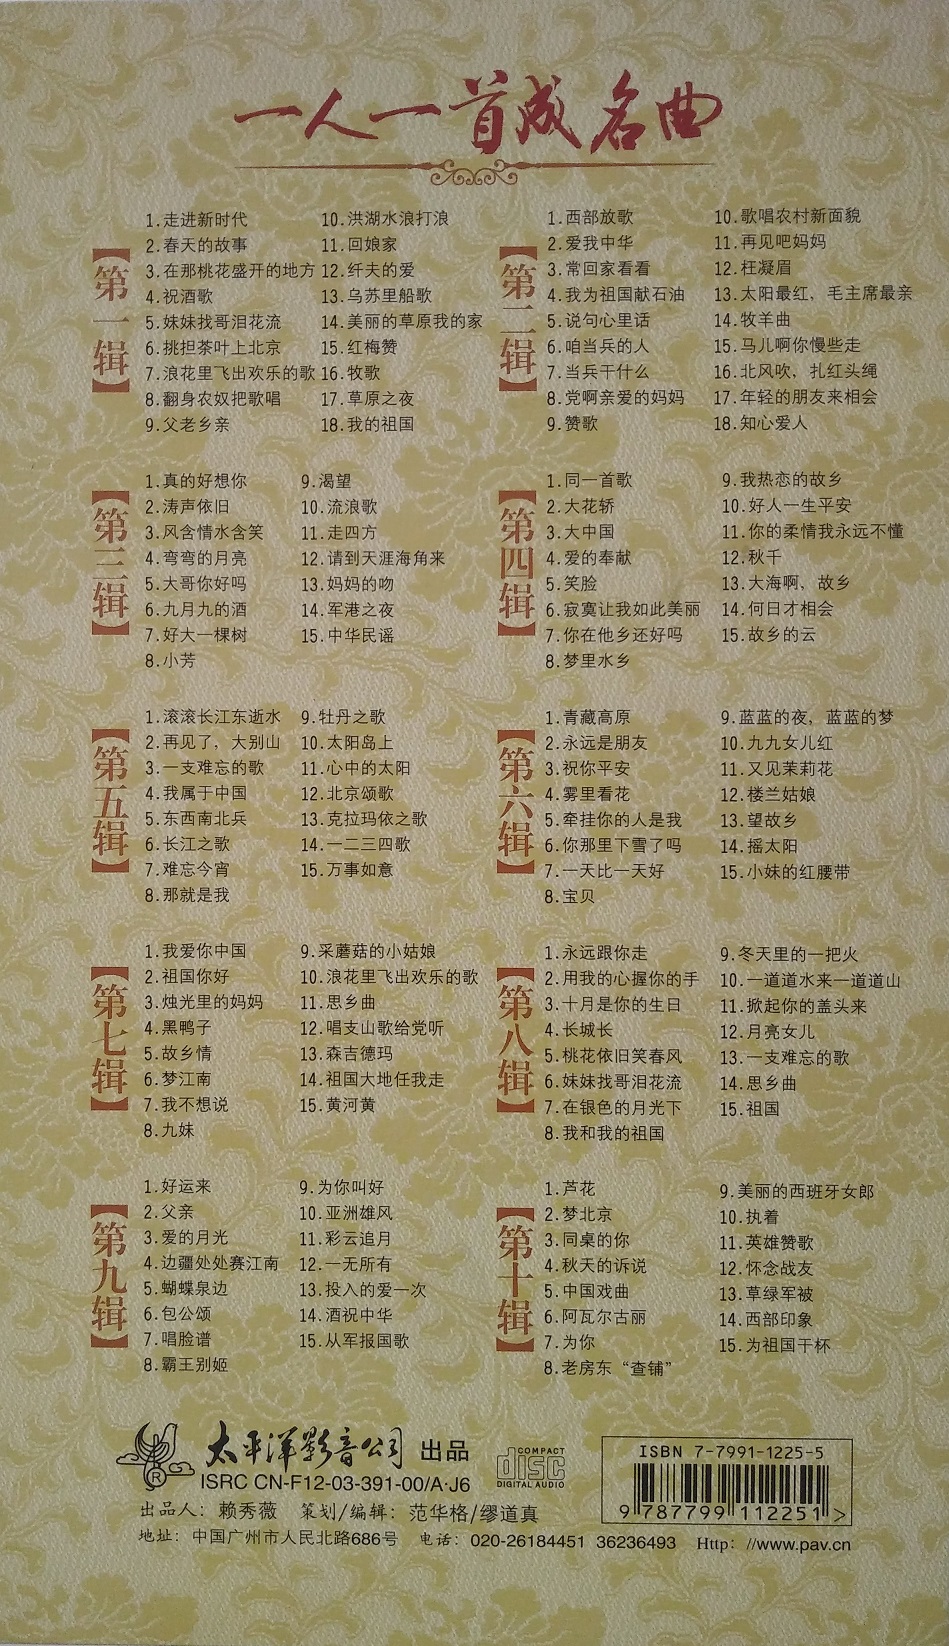 一人一首成名曲
【第一辑】
1.走进新时代
2.春天的故事
3.在那桃花盛开的地方
4.祝酒歌
5.妹妹找哥泪花流
6.挑担茶叶上北京
7.浪花里飞出欢乐的歌
8.翻身农奴把歌唱
9.父老乡亲
10.洪湖水浪打浪
11.回娘家
12.纤夫的爱
13.乌苏里船歌
14.美丽的草原我的家
15.红梅赞
16.牧歌
17.草原之夜
18.我的祖国
【第二辑】
1.西部放歌
2.爱我中华
3.常回家看看
4.我为祖国献石油
5.说句心里话
6.咱当兵的人
7.当兵干什么
8.党啊亲爱的妈妈
9.赞歌
10.歌唱农村新面貌
11.再见吧妈妈
12.枉凝眉
13.太阳最红，毛主席最亲
14.牧羊曲
15.马儿啊你慢些走
16.北风吹，扎红头绳
17.年轻的朋友来相会
18.知心爱人
【第三辑】
1.真的好想你
2.涛声依旧
3.风含情水含笑
4.弯弯的月亮
5.大哥你好吗
6.九月九的酒
7.好大一棵树
8.小芳
9.渴望
10.流浪歌
11.走四方
12.请到天涯海角来
13.妈妈的吻
14.军港之夜
15.中华民谣
【第四辑】
1.同一首歌
2.大花轿
3.大中国
4.爱的奉献
5.笑脸
6.寂寞让我如此美丽
7.你在他乡还好吗
8.梦里水乡
9.我热恋的故乡
10.好人一生平安
11.你的柔情我永远不懂
12.秋千
13.大海啊，故乡
14.何日才相会
15.故乡的云
【第五辑】
1.滚滚长江东逝水
2.再见了，大别山
3.一支难忘的歌
4.我属于中国
5.东西南北兵
6.长江之歌
7.难忘今宵
8.那就是我
9.牡丹之歌
10.太阳岛上
11.心中的太阳
12.北京颂歌
13.克拉玛依之歌
14.一二三四歌
15.万事如意
【第六辑】
1.青藏高原
2.永远是朋友
3.祝你平安
4.雾里看花
5.牵挂你的人是我
6.你那里下雪了吗
7.一天比一天好
8.宝贝
9.蓝蓝的夜，蓝蓝的梦
10.九九女儿红
11.又见茉莉花
12.楼兰姑娘
13.望故乡
14.摇太阳
15.小妹的红腰带
【第七辑】
1.我爱你中国
2.祖国你好
3.烛光里的妈妈
4.黑鸭子
5.故乡情
6.梦江南
7.我不想说
8.九妹
9.采蘑菇的小姑娘
10.浪花里飞出欢乐的歌
11.思乡曲
12.唱支山歌给党听
13.森吉德玛
14.祖国大地任我走
15.黄河黄
【第八辑】
1.永远跟你走
2.用我的心握你的手
3.十月是你的生日
4.长城长
5.桃花依旧笑春风
6.妹妹找哥泪花流
7.在银色的月光下
8.我和我的祖国
9.冬天里的一把火
10.一道道水来一道道山
11.掀起你的盖头来
12.月亮女儿
13.一支难忘的歌
14.思乡曲
15.祖国
【第九辑】
1.好运来
2.父亲
3.爱的月光
4.边疆处处赛江南
5.蝴蝶泉边
6.包公颂
7.唱脸谱
8.霸王别姬
9.为你叫好
10.亚洲雄风
11.彩云追月
12.一无所有
13.投入的爱一次
14.酒祝中华
15.从军报国歌
【第十辑】
1.芦花
2.梦北京
3.同桌的你
4.秋天的诉说
5.中国戏曲
6.阿瓦尔古丽
7.为你
8.老房东“查铺”
9.美丽的西班牙女郎
10.执着
11.英雄赞歌
12.怀念战友
13.草绿军被
14.西部印象
15.为祖国干杯
R
太平洋影音公司 出品
ISRC CN-F12-03-391-00/A·J6
COMPACT
disc
DIGITAL AUDIO
ISBN 7-7991-1225-5
9 787799 112251 >
出品人：赖秀薇 策划/编辑：范华格/缪道真
地址：中国广州市人民北路686号 电话：020-26184451 36236493 Http：//www.pav.cn